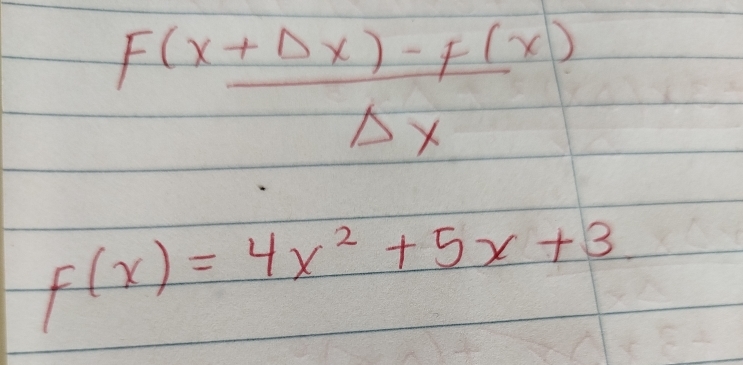 F(x + Δx) - f(x)
Δx
f(x) = 4x² + 5x + 3